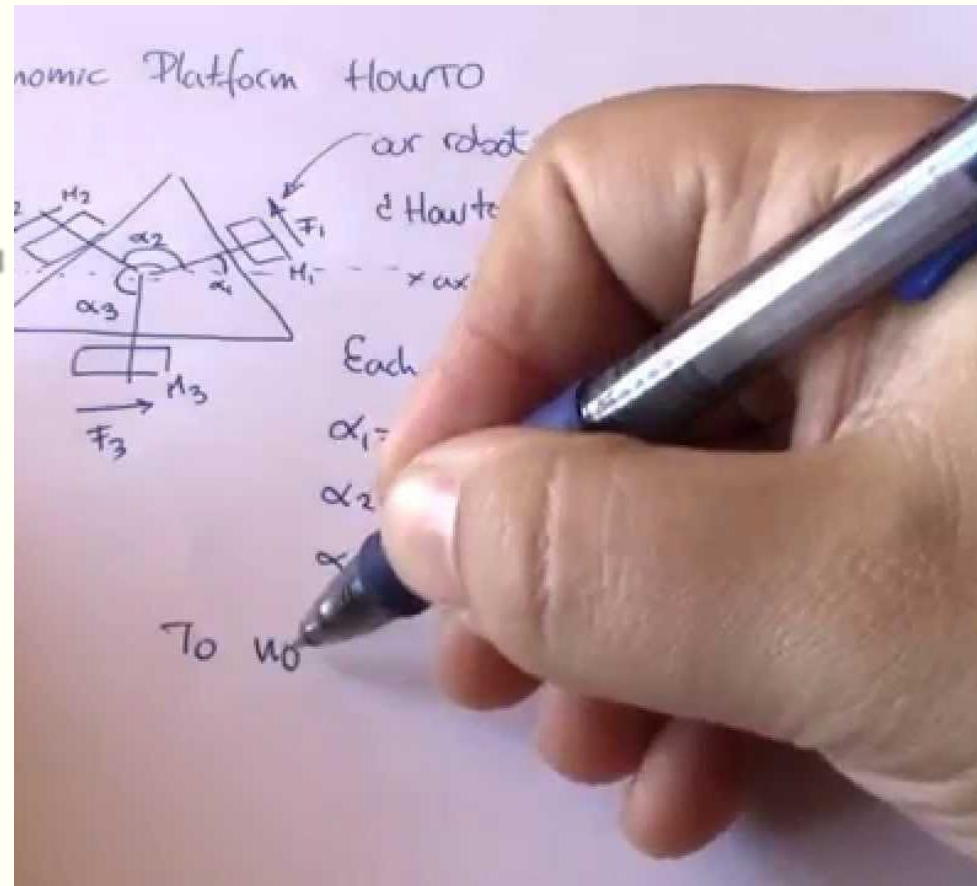 nomic Platform HowTO
our robot
¿ Howto
M2
α2
F1
M1
α1
x ax
α3
Each
M3
F3
α1=
α2
α
To no